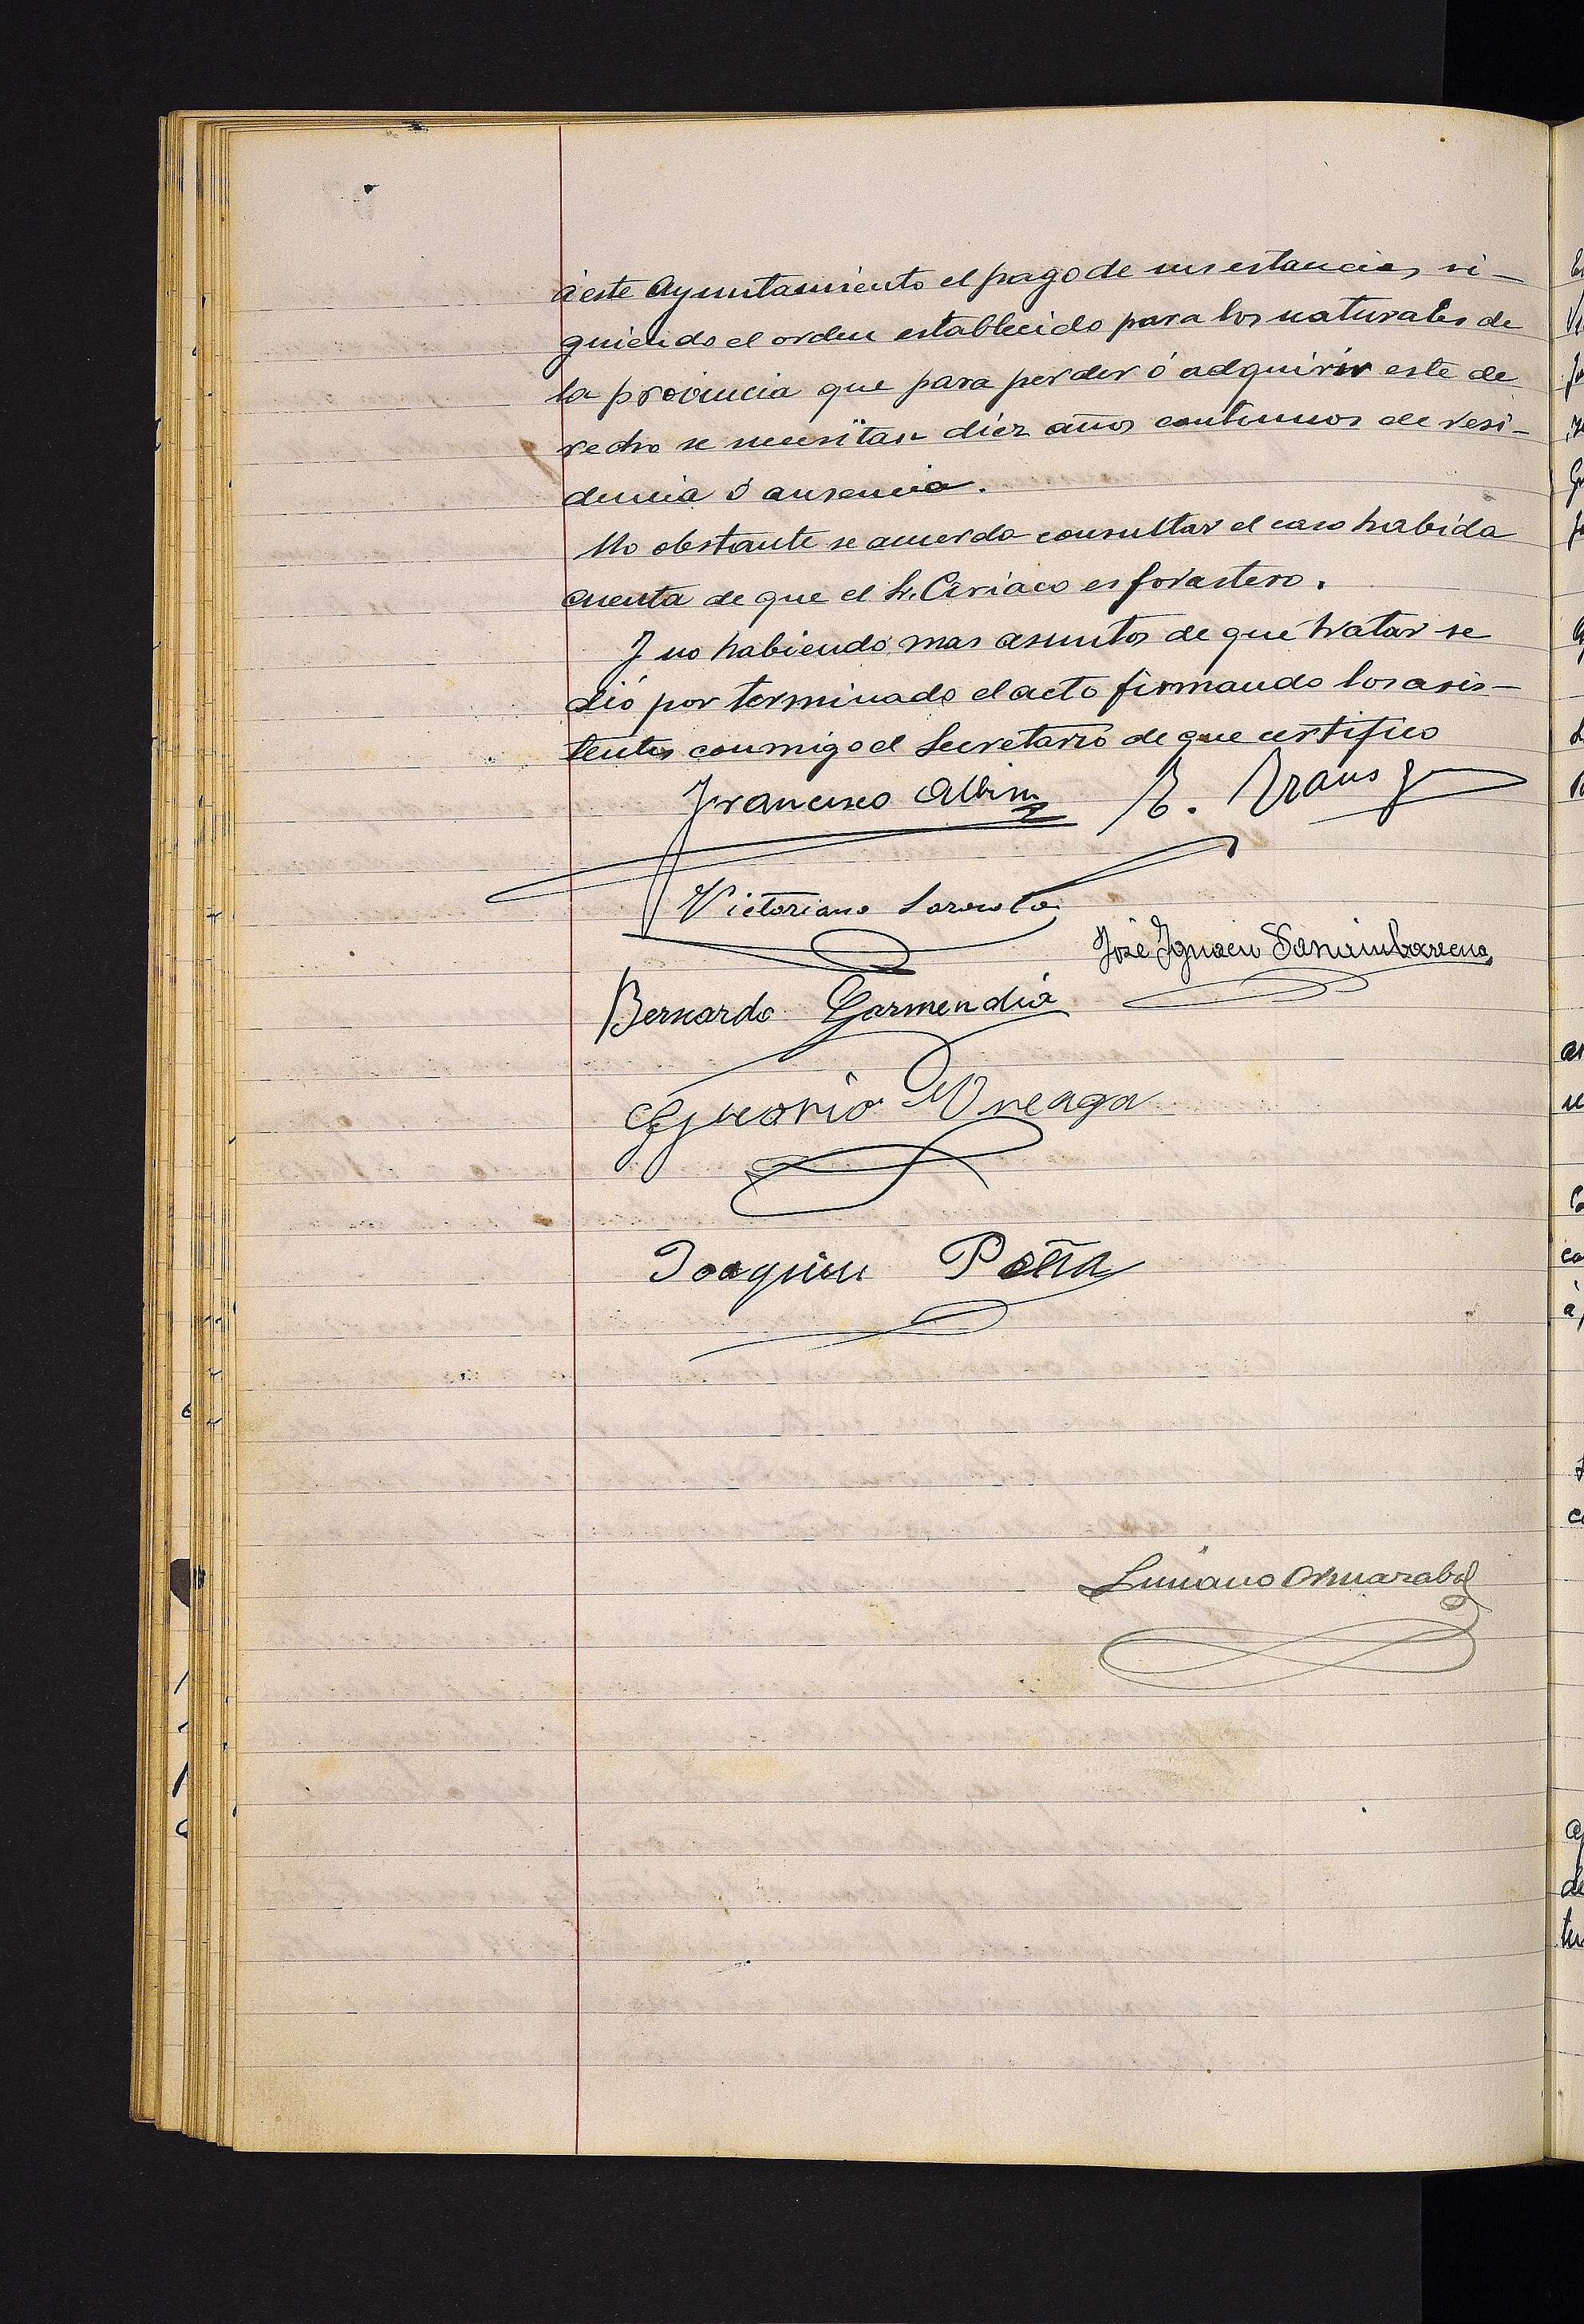 á este Ayuntamiento el pago de sus estancias, si-
guiendo el orden establecido para los naturales de
la provincia que para perder ó adquirir este de
recho se necesitan diez años continuos de resi-
dencia ó ausencia.
No obstante se acuerda consultar el caso habida
cuenta de que el Sr. Ciriaco es forastero.
Y no habiendo mas asuntos de que tratar se
dió por terminado el acto firmando los asis-
tentes conmigo el Secretario de que certifico
Francisco Albin
Victoriano
José Ignacio Sanzinbarrena
Bernardo Garmendia
Joaquin Peña
Luciano Ormazabal